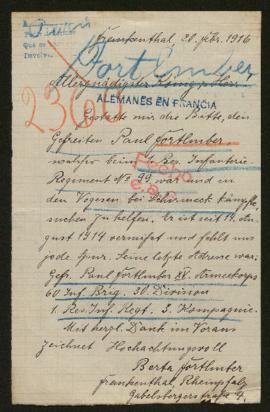 Frankenthal, 20. Febr. 1916
Fortlimber
Allergnädigster König u. Herr
ALEMANES EN FRANCIA
Gestatte mir die Bitte, den
Gefreiten Paul Förtlmber
beim Res. Infanterie
Regiment No 99 war und in
den Vogesen bei Schirmeck kämpfte,
suchen zu helfen. Er ist seit 14. Au-
gust 1914 vermißt und fehlt uns
jede Spur. Seine letzte Adresse war:
Gefr. Paul Förtlmber XV. Armeekorps
60 Inf. Brig. 30. Division
1. Res. Inf. Regt. 3. Kompagnie.
Mit herzl. Dank im Voraus
zeichnet Hochachtungsvoll
Berta Förtlmber
Frankenthal, Rheinpfalz
Gabelsbergerstraße 4.